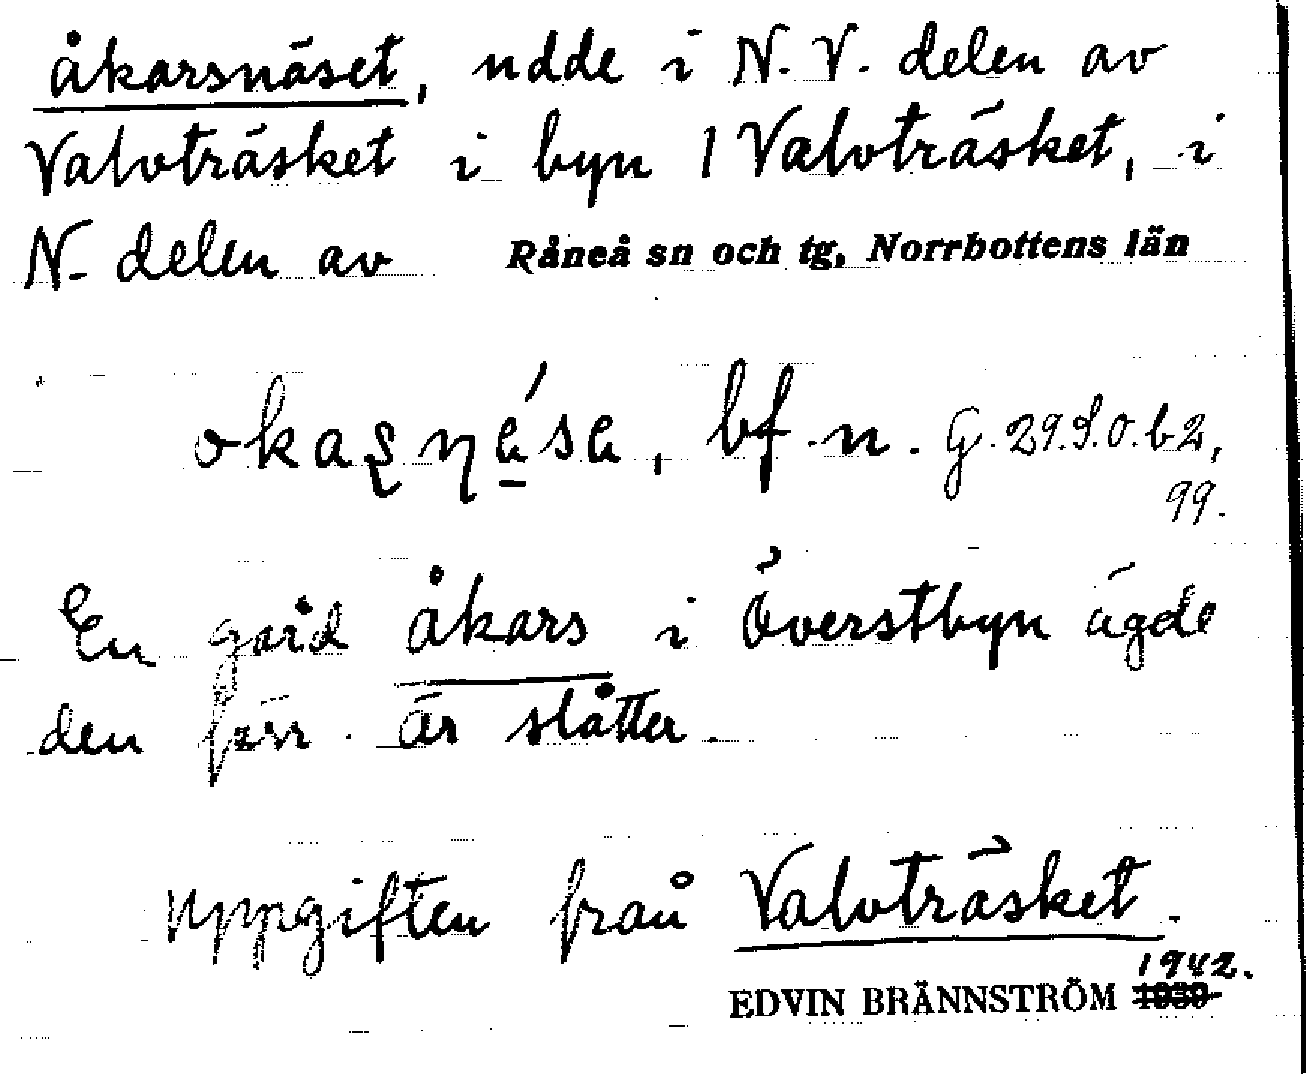 åkarsnäset, udde i N. V. delen av
Valvträsket i byn 1 Valvträsket, i
N. delen av Råneå sn och tg, Norrbottens län
bf. n. G. 29. S. O. b 2,
99.
En gård åkars i Överstbyn ägde
den förr. är slåtter.
Uppgiften från Valvträsket.
1942.
EDVIN BRÄNNSTRÖM 1939